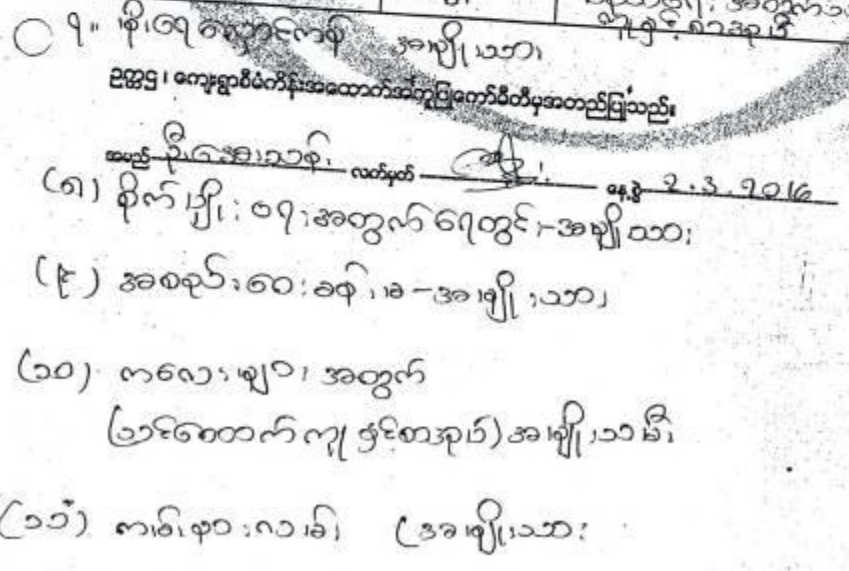 ၇။ မိုးရေလှောင်ကန် အမျိုးသား
ဥက္ကဋ္ဌ၊ ကျေးရွာစီမံကိန်းအထောက်အကူပြုကော်မီတီမှအတည်ပြုသည်။
အမည် ဦးအေးသန်း လက်မှတ် နေ့စွဲ 2.3.2016
(၈) စိုက်ပျိုးရေးအတွက်ရေတွင်း-အမျိုးသား
(၉) အစည်းဝေးခန်းမ-အမျိုးသား
(၁၀) ကလေးများအတွက်
(သင်ထောက်ကူနှင့်စာအုပ်)အမျိုးသမီး
(၁၁) ကမ်းနားလမ်း (အမျိုးသား